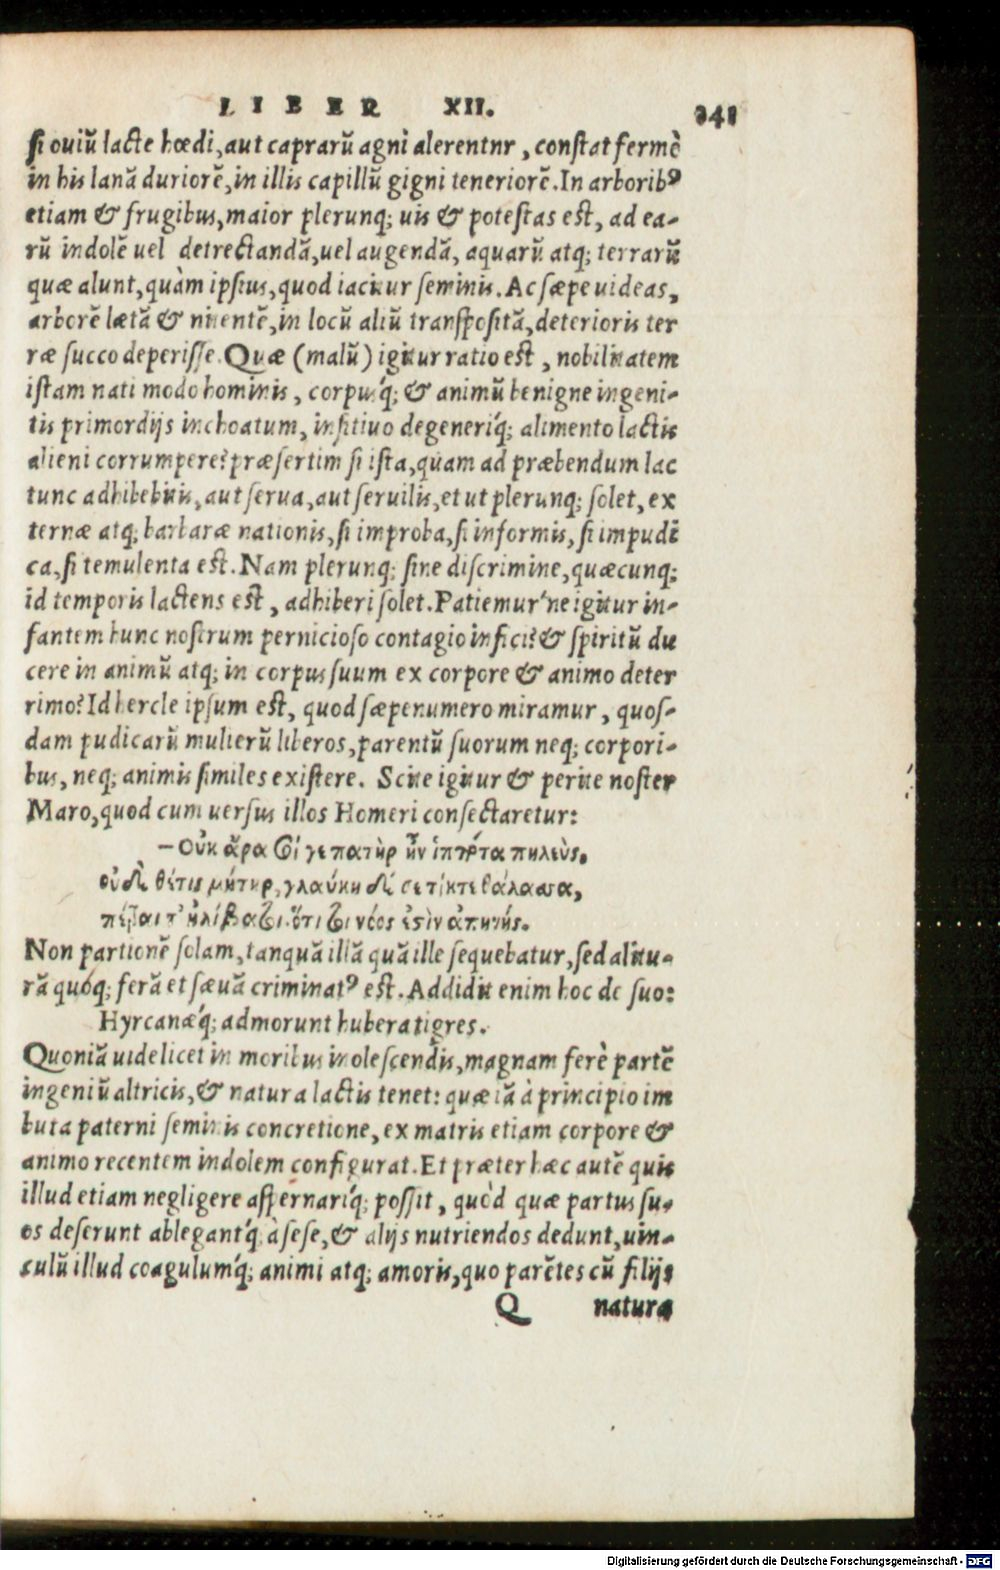 LIBER XII. 241
si ouiũ lacte hœdi, aut caprarũ agni alerentnr, constat fermè
in his lanã duriorẽ, in illis capillũ gigni teneriorẽ. In arborib⁹
etiam & frugibus, maior plerunq; uis & potestas est, ad ea-
rũ indolẽ uel detrectandã, uel augendã, aquarũ atq; terrarũ
quæ alunt, quàm ipsius, quod iacitur seminis. Ac sæpe uideas,
arborẽ lætã & nitentẽ, in locũ aliũ transpositã, deterioris ter
ræ succo deperisse. Quæ (malũ) igitur ratio est, nobilitatem
istam nati modo hominis, corpusq́; & animũ benigne ingeni-
tis primordijs inchoatum, insitiuo degeneriq́; alimento lactis
alieni corrumpere? præsertim si ista, quam ad præbendum lac
tunc adhibebitis, aut serua, aut seruilis, et ut plerunq; solet, ex
ternæ atq; barbaræ nationis, si improba, si informis, si impudi
ca, si temulenta est. Nam plerunq; sine discrimine, quæcunq;
id temporis lactens est, adhiberi solet. Patiemur'ne igitur in-
fantem hunc nostrum pernicioso contagio infici? & spiritũ du
cere in animũ atq; in corpus suum ex corpore & animo deter
rimo? Id hercle ipsum est, quod sæpenumero miramur, quos-
dam pudicarũ mulierũ liberos, parentũ suorum neq; corpori-
bus, neq; animis similes existere. Scite igitur & perite noster
Maro, quod cum uersus illos Homeri consectaretur:
—Οὐκ ἄρα σοί γε πατὴρ ἦν ἱππότα πηλεὺς.
οὐδὲ θέτις μήτηρ, γλαύκη δέ σε τίκτε θάλασσα,
πέτραι τ' ἠλίβατοι. ὅτι τοι νόος ἐστὶν ἀπηνής.
Non partionẽ solam, tanquã illã quã ille sequebatur, sed alitu-
rã quoq; ferã et sæuã criminat⁹ est. Addidit enim hoc de suo:
Hyrcanæq́; admorunt hubera tigres.
Quoniã uidelicet in moribus inolescendis, magnam ferè partẽ
ingeniũ altricis, & natura lactis tenet: quæ iã à principio im
buta paterni seminis concretione, ex matris etiam corpore &
animo recentem indolem configurat. Et præter hæc autẽ quis
illud etiam negligere aspernariq́; possit, quòd quæ partus su-
os deserunt ablegantq́; à sese, & alijs nutriendos dedunt, uin-
culũ illud coagulumq́; animi atq; amoris, quo parẽtes cũ filijs
Q natura
Digitalisierung gefördert durch die Deutsche Forschungsgemeinschaft - DFG